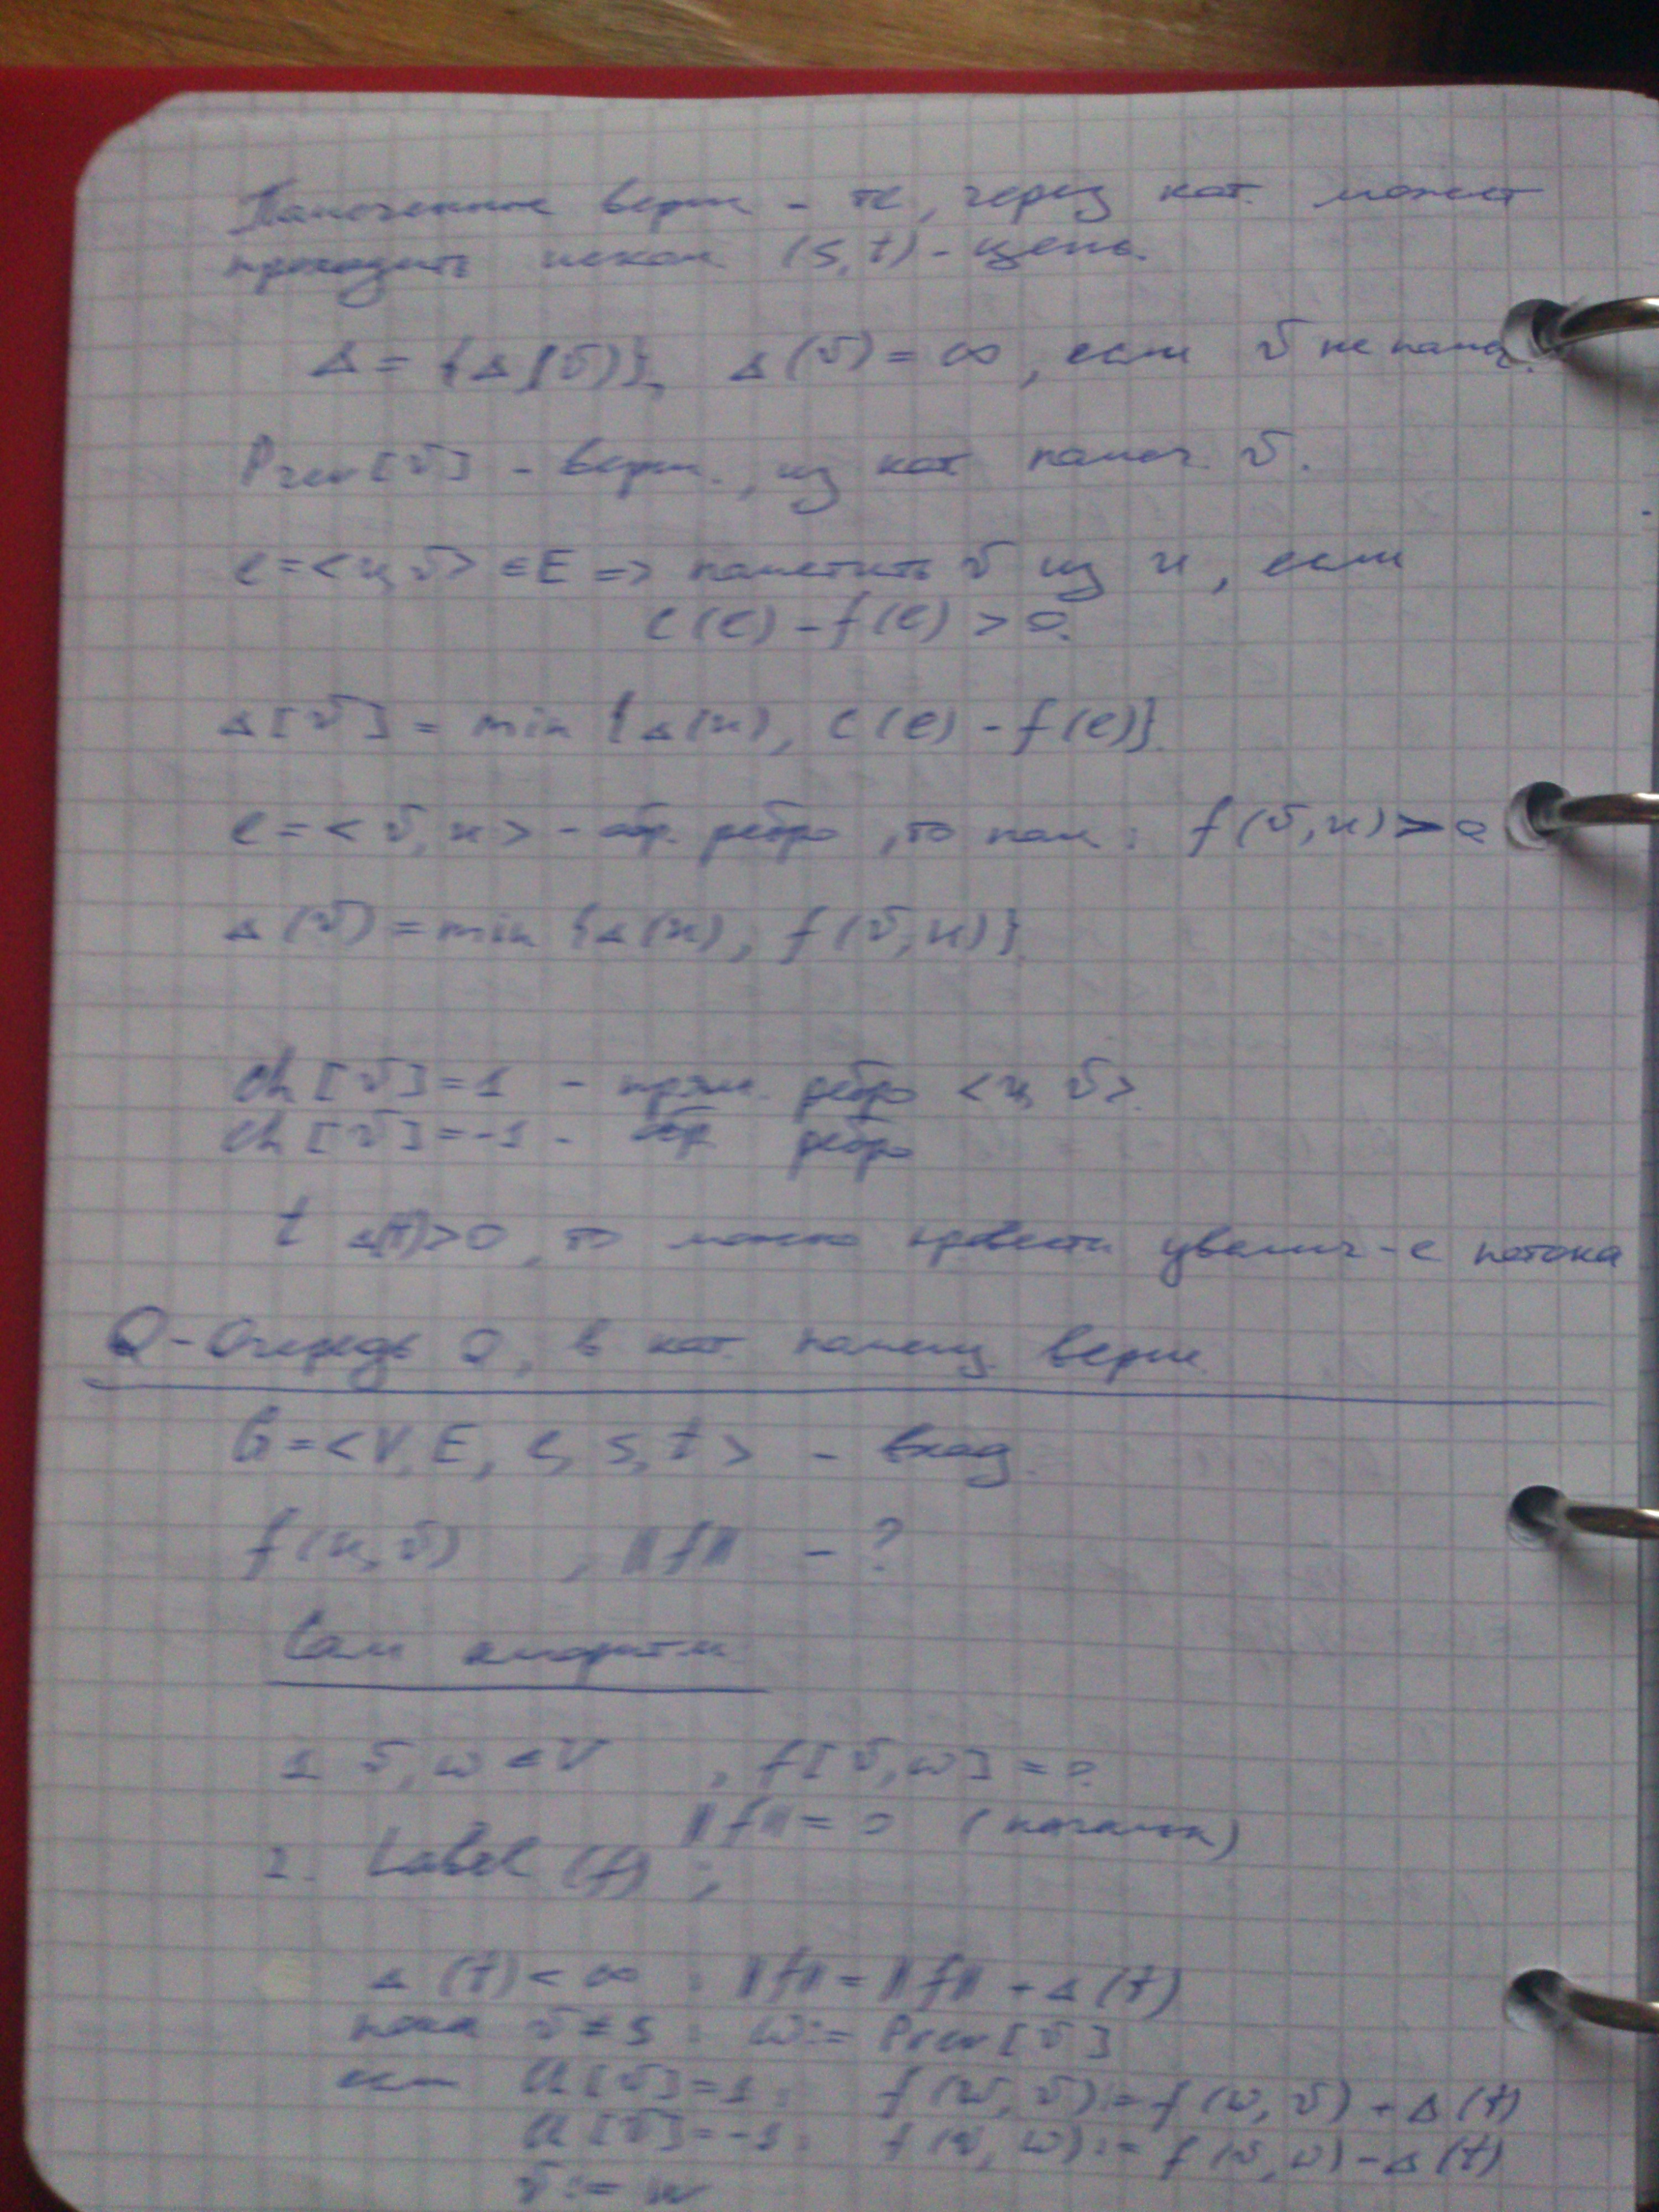 Помеченные верш – те, через кот. может
проходить иском (s,t) – цепь.
Δ = {Δ[v]}, Δ(v) = ∞, если v не помеч.
Prev[v] – верш., из кот помеч. v.
e = <u,v> ∈ E => пометить v из u, если
c(e) – f(e) > 0.
Δ[v] = min {Δ(u), c(e) – f(e)}.
e = <v,u> – обр. ребро, то пом: f(v,u) > 0
Δ(v) = min {Δ(u), f(v,u)}.
ch[v] = 1 – прям. ребро <u,v>.
ch[v] = -1 – обр ребро
t Δ(t)>0, то можно провести увелич-е потока
Q – Очередь Q, в кот. помещ. верш.
G = <V, E, c, s, t> – вход.
f(u,v) , ||f|| – ?
Сам алгоритм
1 v, w ∈ V , f[v,w] = 0
||f|| = 0 (начальн)
2. Label (f) ;
Δ(t) < ∞ : ||f|| = ||f|| + Δ(t)
пока v ≠ s : w := Prev[v]
если ch[v] = 1 : f(w,v) := f(w,v) + Δ(t)
ch[v] = -1 : f(v,w) := f(v,w) – Δ(t)
v := w